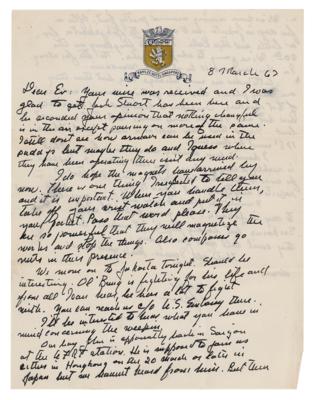 RAFFLES HOTEL SINGAPORE
8 March 67
Dear Ev: Yours mire was received and I was
glad to get. Jack Stuart has been here and
he seconded your opinion that nothing changeful
is in the air except pouring on more of the same.
I still don't see how armour can be used in the
paddys but maybe they do and I guess where
they have been operating there isn't any mud.
I do hope the magnets have arrived by
now. There is one thing I neglected to tell you
and it is important. When you handle them,
take off your wrist watch and put it in
your pocket. Pass that word please. They
are so powerful that they will magnetize the
works and stop the things. Also compasses go
nuts in their presence.
We move on to Jakarta tonight. Should be
interesting. Ol' Bung is fighting for his life and
from all I can hear, he has a lot to fight
with. You can reach us c/o U.S. Embassy there.
I'll be interested to hear what you have in
mind concerning the weapon.
Our boy John is apparently back in Saigon
at the station. He is supposed to join us
either in Hongkong on the 20 March or later in
Japan but we haven't heard from him. But then